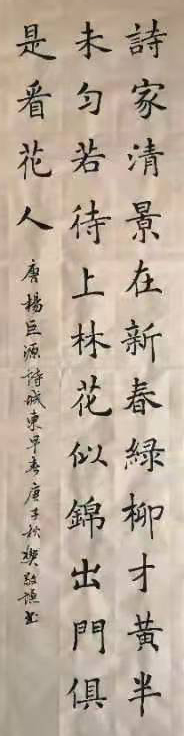 詩家清景在新春綠柳才黃半
未勻若待上林花似錦出門俱
是看花人
唐楊巨源詩城東早春庚子秋樊敬謹書